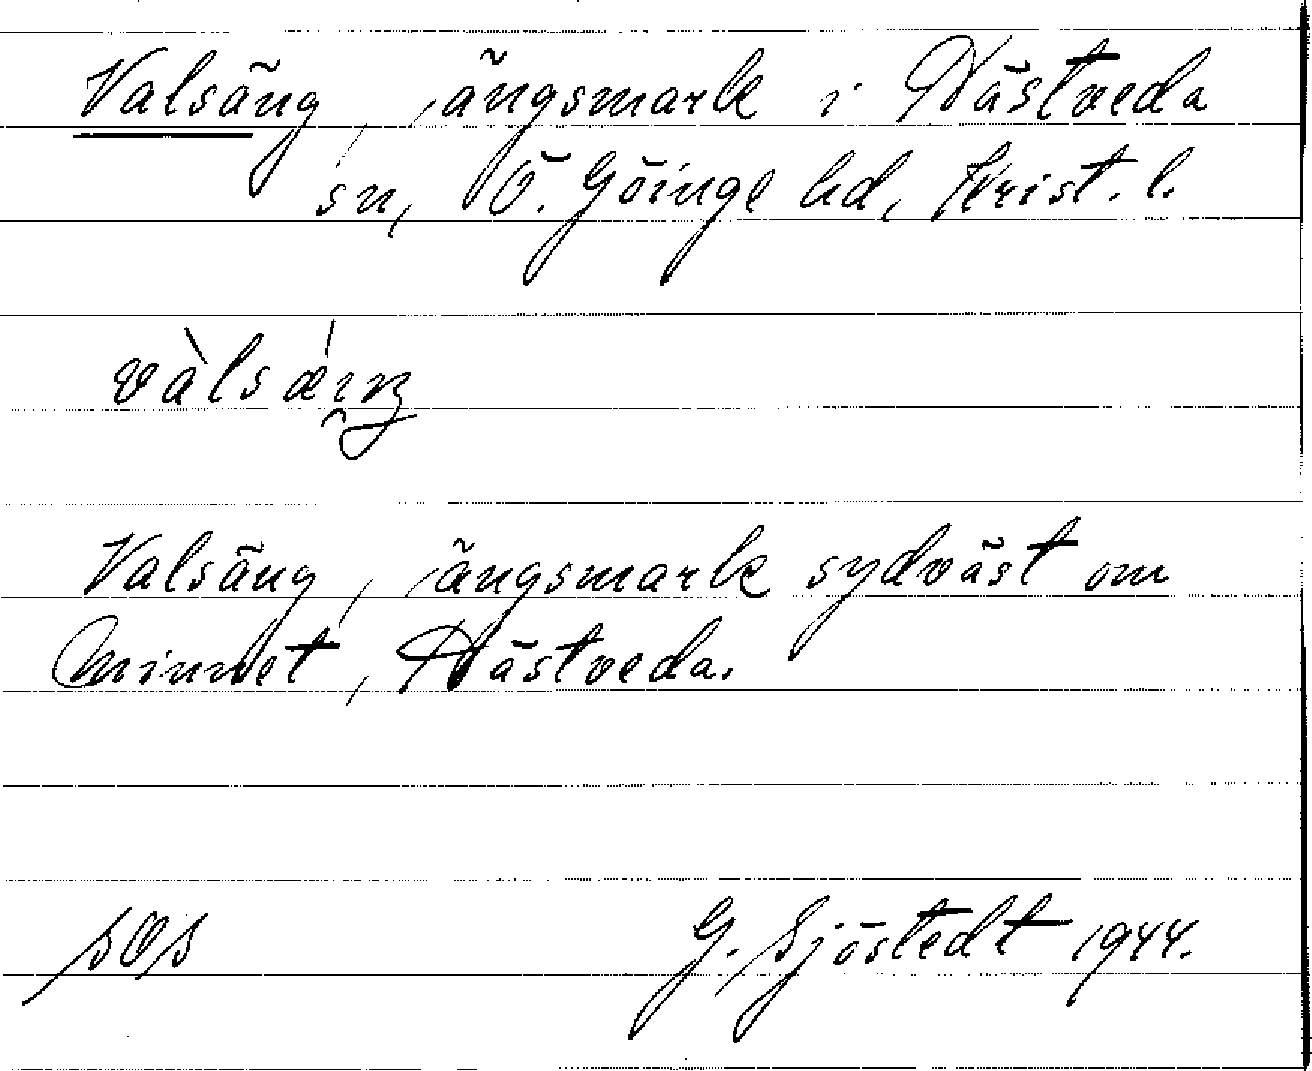 Valsäng, ängsmark i Hästveda
sn, Ö. Göinge hd, Krist. l.
Valsäng, ängsmark sydväst om
Minnet, Hästveda.
sOs G. Sjöstedt 1944.